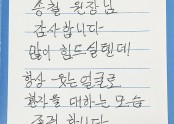 송철 원장님
감사합니다
많이 힘드실텐데
항상 웃는 얼굴로
환자를 대하는 모습
존경합니다